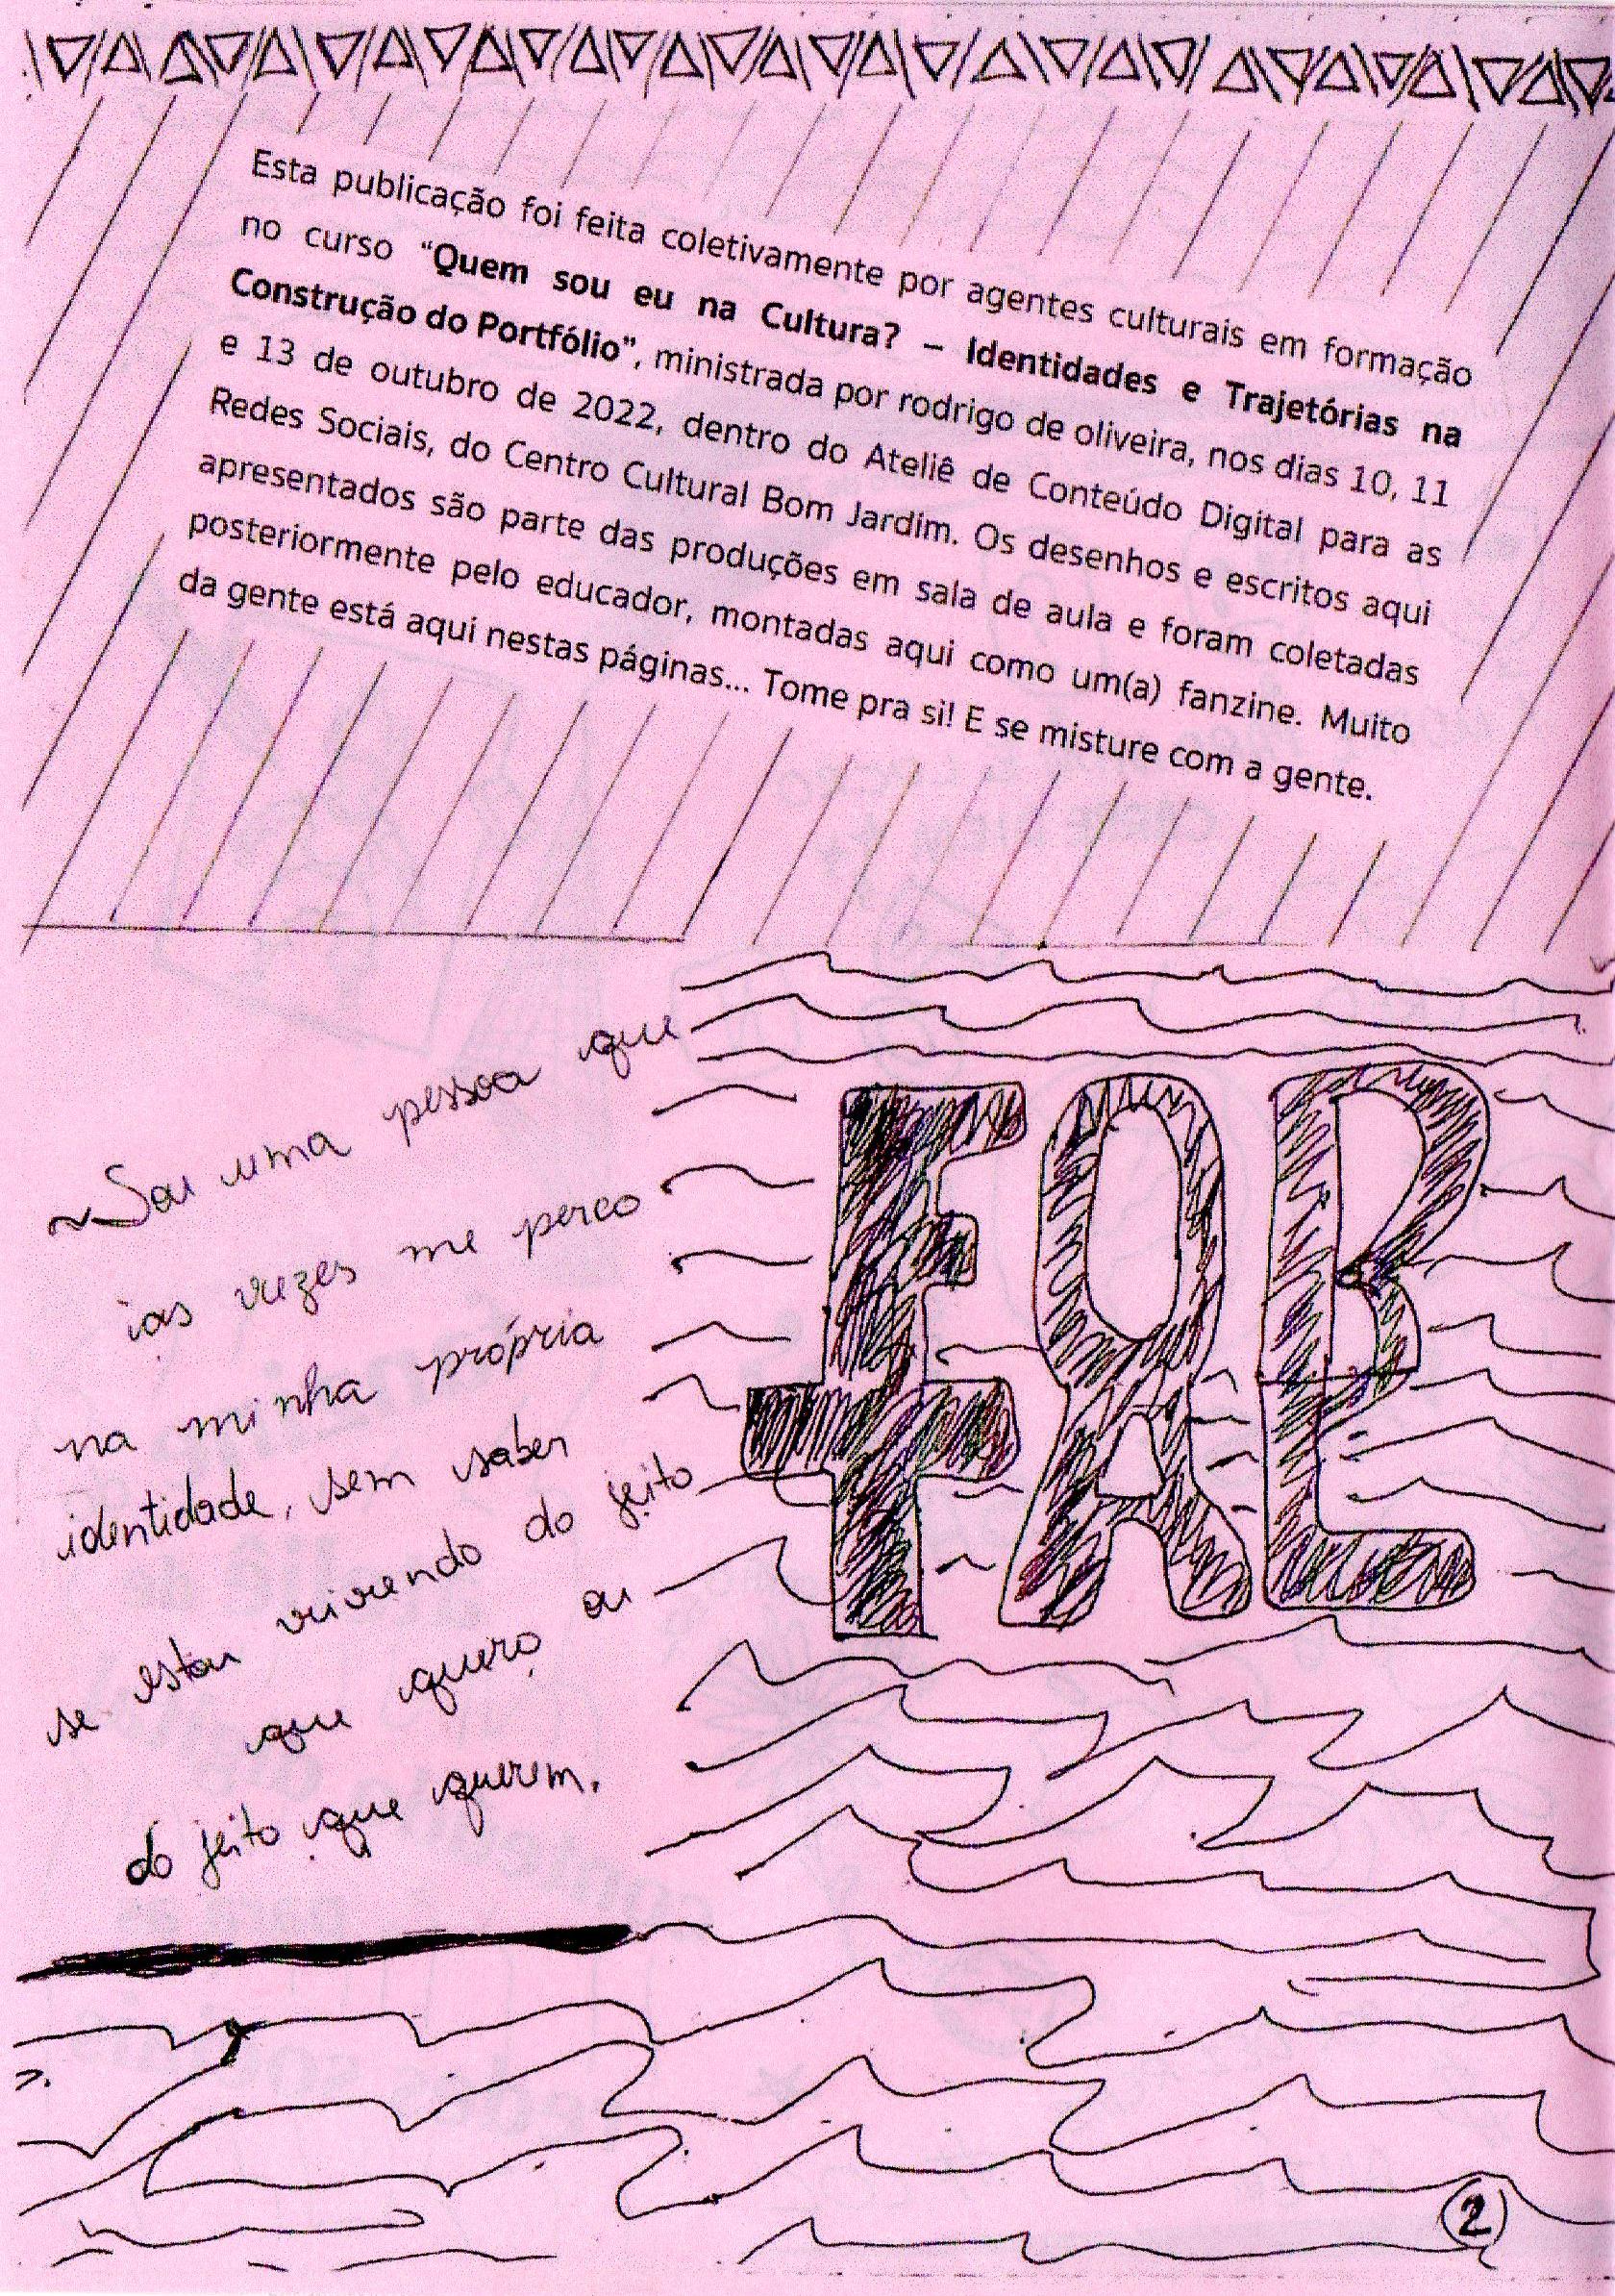 Esta publicação foi feita coletivamente por agentes culturais em formação
no curso “Quem sou eu na Cultura? – Identidades e Trajetórias na
Construção do Portfólio”, ministrada por rodrigo de oliveira, nos dias 10, 11
e 13 de outubro de 2022, dentro do Ateliê de Conteúdo Digital para as
Redes Sociais, do Centro Cultural Bom Jardim. Os desenhos e escritos aqui
apresentados são parte das produções em sala de aula e foram coletadas
posteriormente pelo educador, montadas aqui como um(a) fanzine. Muito
da gente está aqui nestas páginas... Tome pra si! E se misture com a gente.
~Sou uma pessoa que
as vezes me perco
na minha própria
identidade, sem saber
se estou vivendo do jeito
que quero ou
do jeito que querem.
FOR
TAL
2